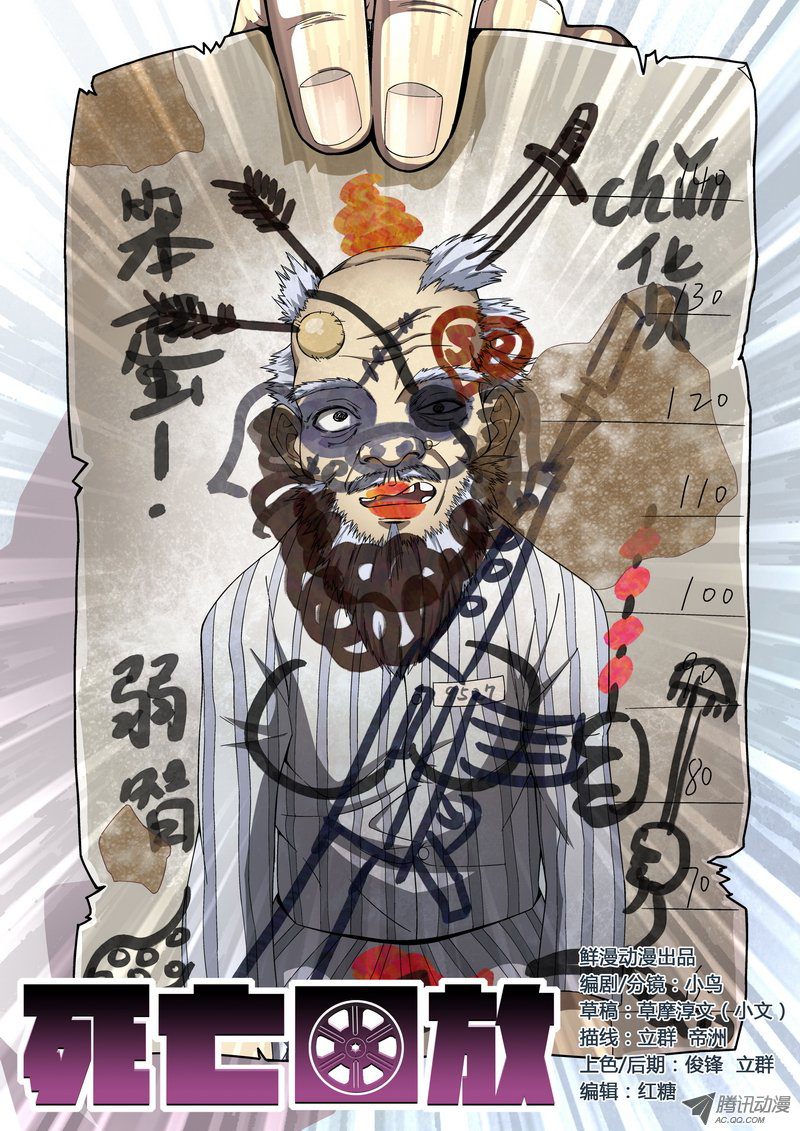 chǔn
货
笨蛋！
弱智
140
130
120
110
100
90
80
70
9527
死亡回放
鲜漫动漫出品
编剧/分镜：小鸟
草稿：草摩淳文（小文）
描线：立群 帝洲
上色/后期：俊锋 立群
编辑：红糖
腾讯动漫
AC.QQ.COM